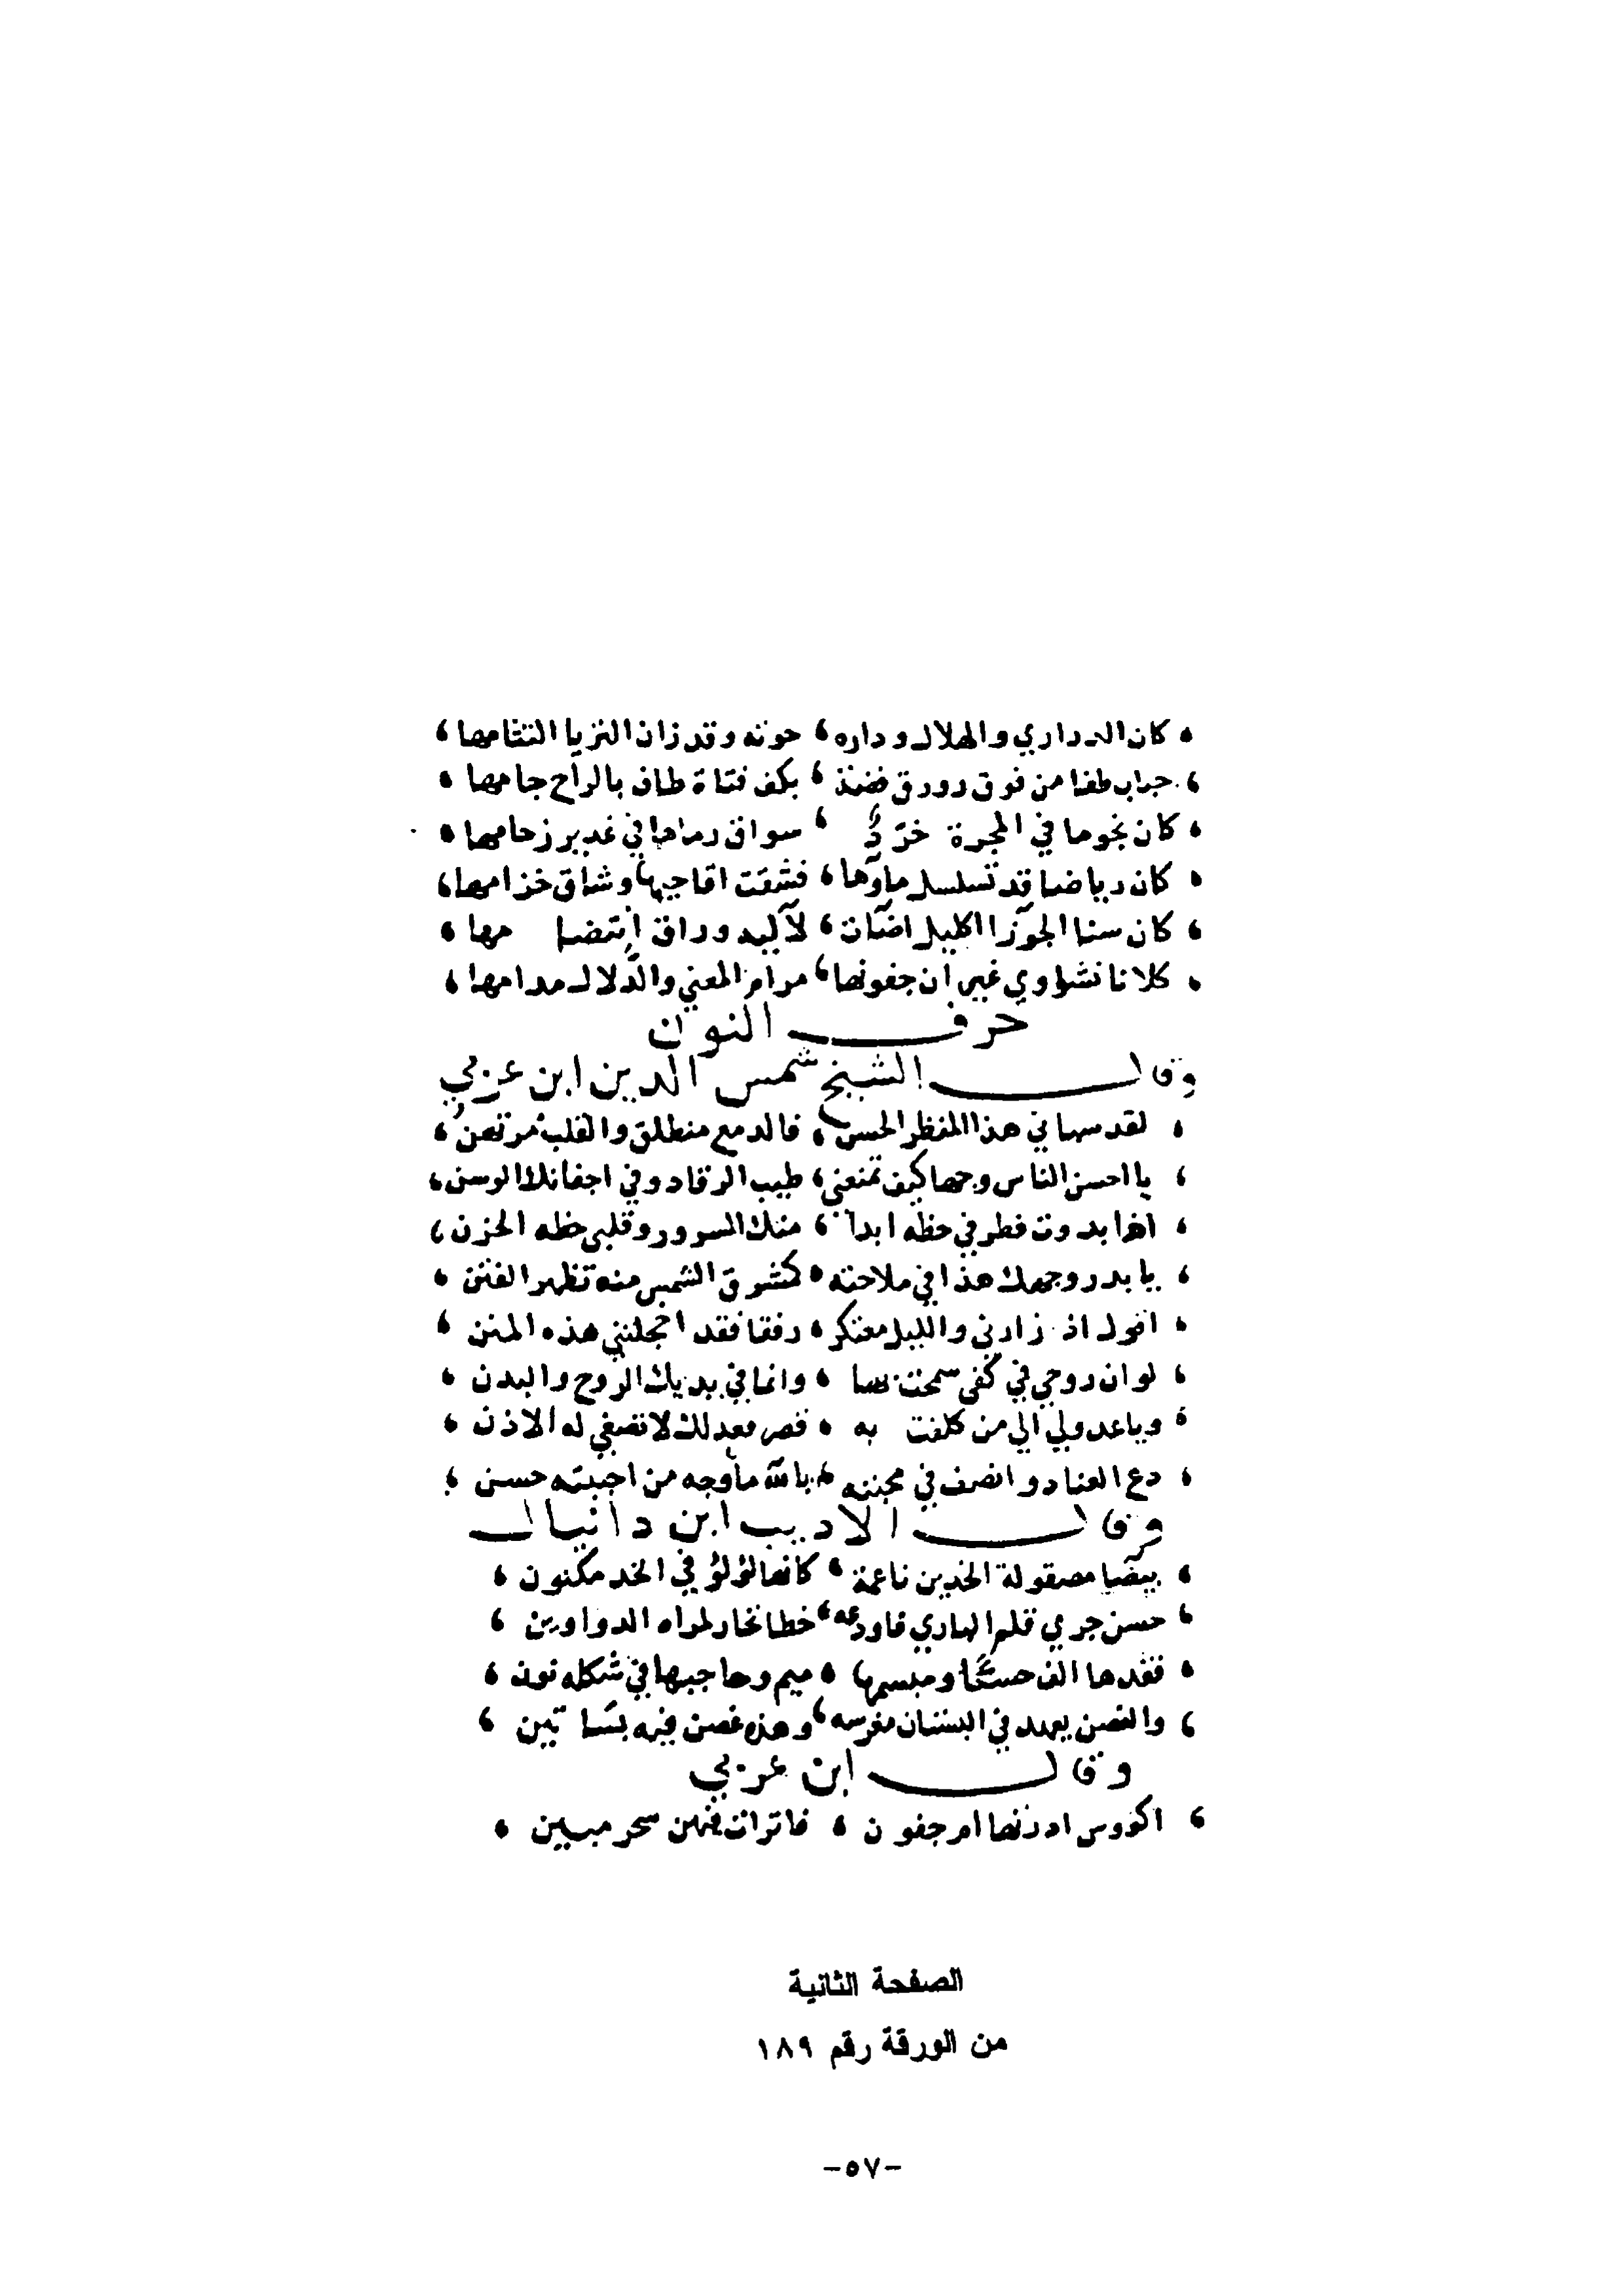 كان الدراري والهلال وداره ، حوته وقد زان الثريا التثامها ،
حباب طفا من فوق زورق فضة ، بكف فتاة طاف بالراح جامها ،
كان نجوما في المجرة خرّد ، سواق رماها في غدير زحامها ،
كان رياضا قد تسلسل ماؤها ، فشقت اقاحيها وشاق خزامها ،
كان سنا الجوزا اكليل اضآت ، لآليه وراق انتضا مها ،
كلانا نشاوي غير ان جفونها ، مرام المعني والدلال مدامها ،
حرف النون
وقال الشيخ شمس الدين ابن عربي
لقد سها في هذا المنظر الحسن ، فالدمع منطلق والقلب مرتهن ،
يا احسن الناس وجها كيف تمنعني ، طيب الرقاد وفي اجفانك الوسن ،
اذا بدوت فطرفي حظه ابدا ، منك السرور وقلبي حظه الحزن ،
يا بدر وجهك هذا في ملاحته ، كشرق الشمس منه تظهر الفتن ،
اقول اذ زارني والليل معتكر ، رفقا فقد اخجلتني هذه المنن ،
لو ان روحي في كفي سمحت بها ، وانما في يديك الروح والبدن ،
ويا عدولي الي من كلفت به ، قصر فعدلك لا تصغي له الاذن ،
دع العناد وانصف في محبته ، بالله ما وجه من احببته حسن ،
وقال الاديب ابن دانيال
بيضا مصقولة الخدين ناعمة ، كانها لؤلؤ في الخد مكنون ،
حسن جري قلم الباري فاودعه ، خطا تحار لمراه الدواوين ،
فقدها الف حسنا ومبسمها ، ميم وحاجبها في شكله نون ،
والغصن يعهد في البستان مغرسه ، وهذه غصن فيه بسا تين ،
وقال ابن عربي
اكووس ادرتها ام جفو ن ، فاترات فيهن سحر مبين ،
الصفحة الثانية
من الورقة رقم ١٨٩
-٥٧-